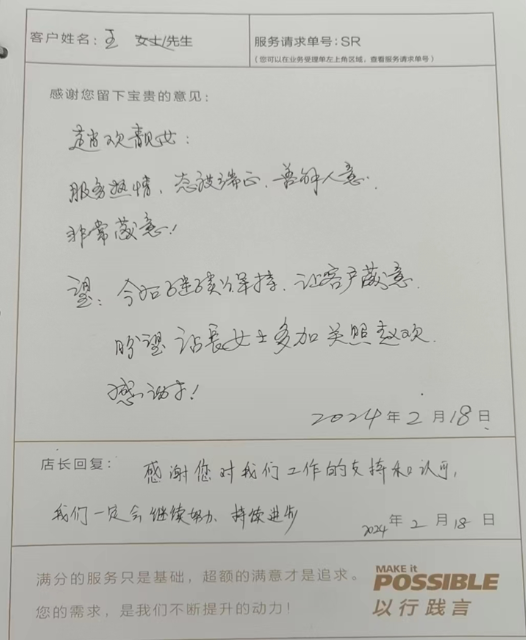 客户姓名：王 女士/先生
服务请求单号：SR
（您可以在业务受理单左上角区域，查看服务请求单号）
感谢您留下宝贵的意见：
赵欢靓女：
服务热情、态度端正、善解人意．
非常满意！
望：今后继续保持．让客户满意．
盼望站长女士多加关照赵欢．
感谢！
2024年2月18日
店长回复：感谢您对我们工作的支持和认可，
我们一定会继续努力、持续进步
2024年2月18日
满分的服务只是基础，超额的满意才是追求。
您的需求，是我们不断提升的动力！
MAKE it
POSSIBLE
以行践言